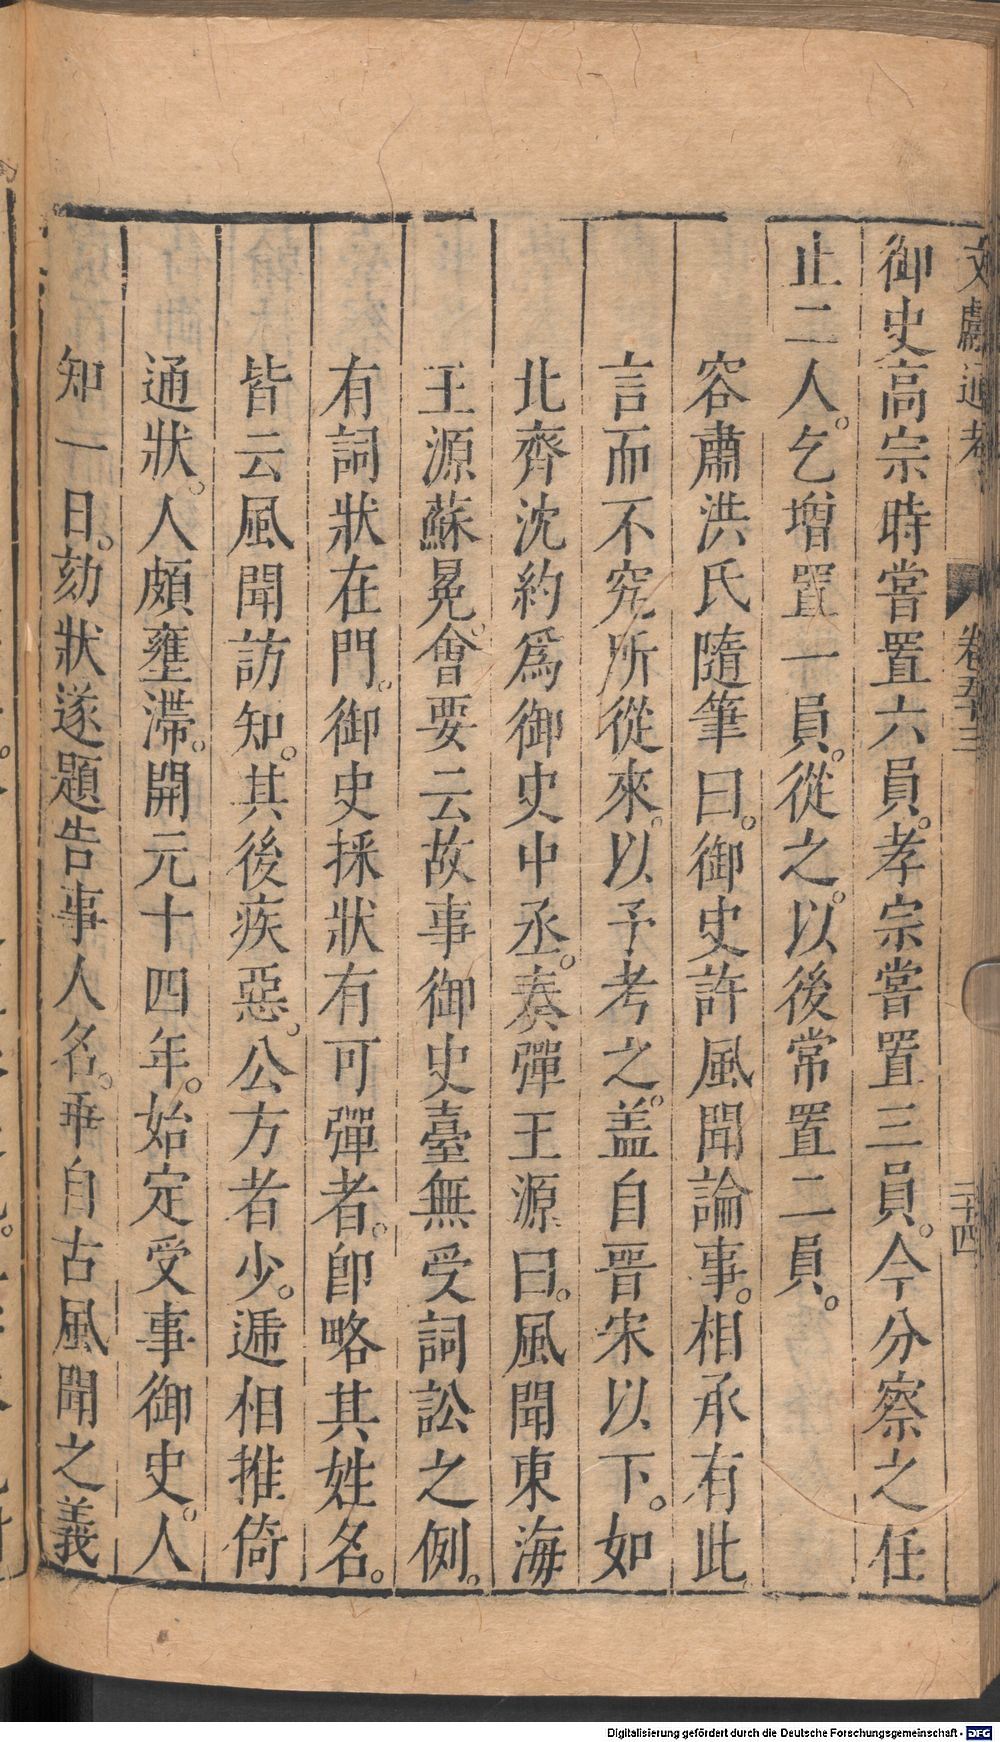 文獻通考 卷五十三 二十四
御史高宗時嘗置六員。孝宗嘗置三員。今分察之任
止二人。乞增置一員。從之。以後常置二員。
容肅洪氏隨筆曰。御史許風聞論事。相承有此
言而不究所從來。以予考之。盖自晉宋以下。如
北齊沈約爲御史中丞。奏彈王源曰。風聞東海
王源蘇冕。會要云故事御史臺無受詞訟之例。
有詞狀在門。御史採狀有可彈者。卽略其姓名。
皆云風聞訪知。其後疾惡。公方者少。遞相推倚
通狀。人頗壅滯。開元十四年。始定受事御史。人
知一日。劾狀遂題告事人名。乖自古風聞之義
Digitalisierung gefördert durch die Deutsche Forschungsgemeinschaft - DFG